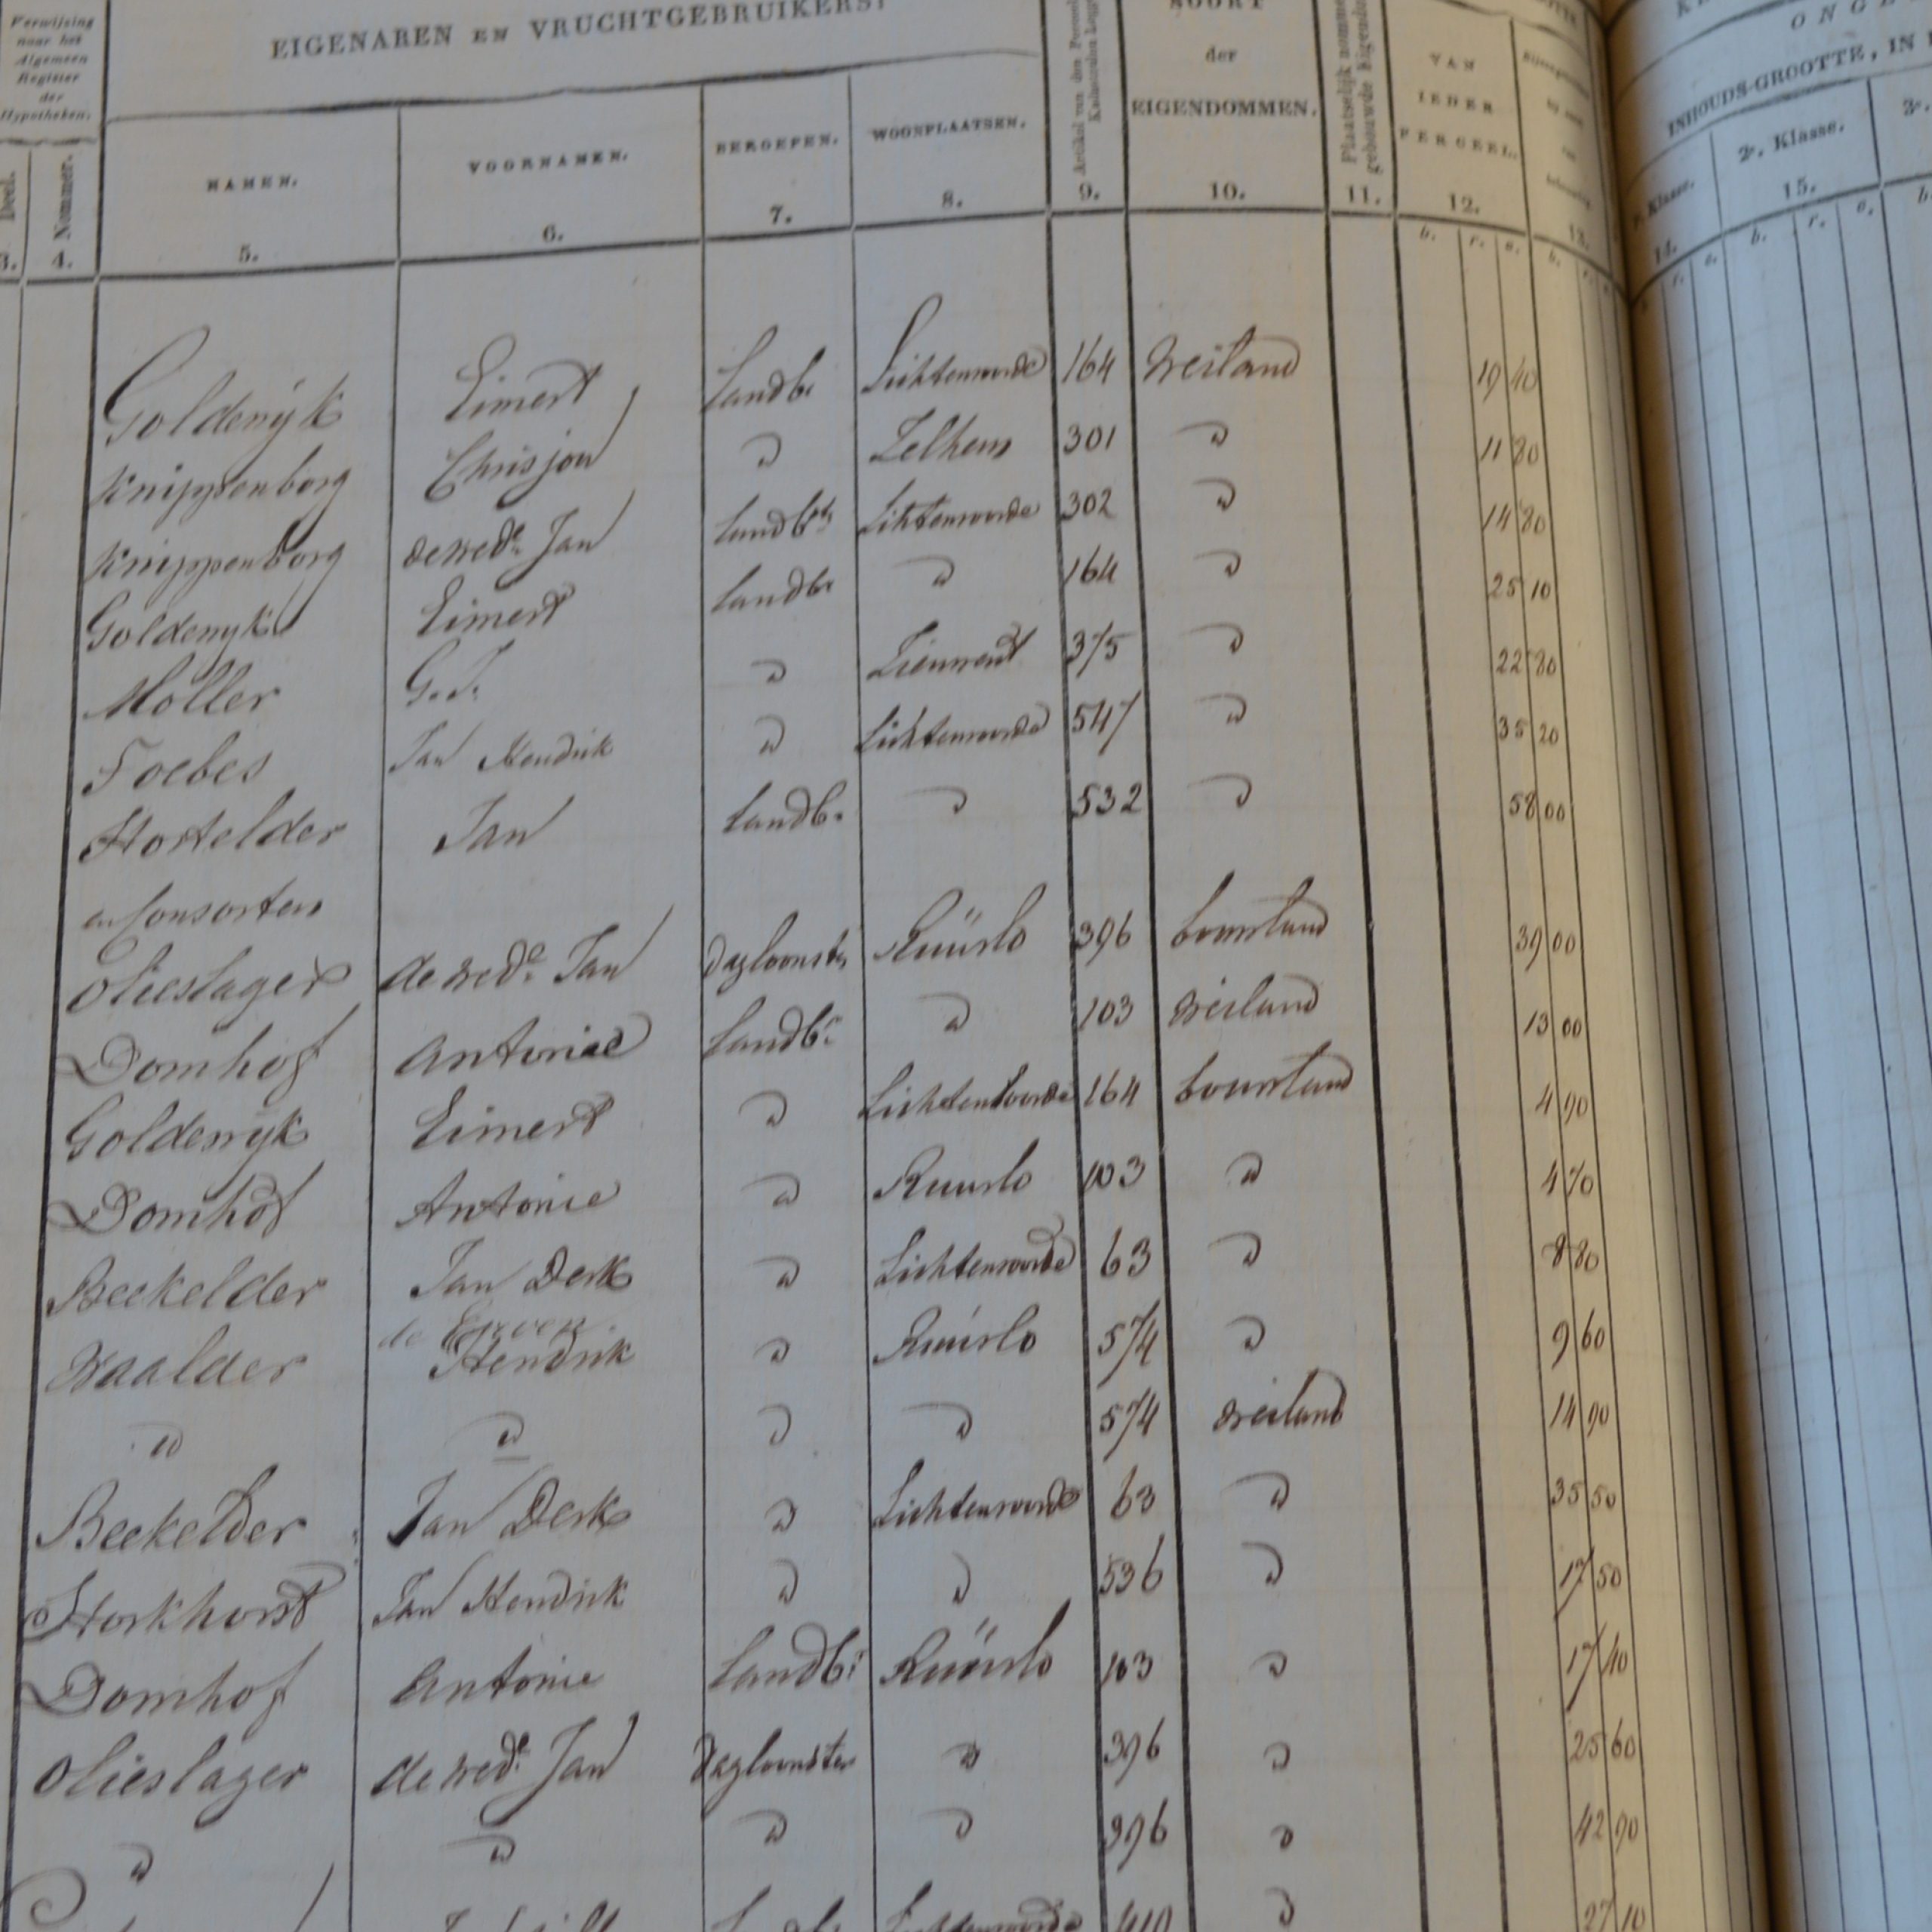 Verwijzing naar het Algemeen Register der Hypotheken.
EIGENAREN EN VRUCHTGEBRUIKERS.
SOORT der EIGENDOMMEN.
VAN IEDER PERCEEL.
INHOUDS-GROOTTE, IN
Deel. Nommer. NAMEN. VOORNAMEN. BEROEPEN. WOONPLAATSEN. Klasse. 2e. Klasse. 3e.
3. 4. 5. 6. 7. 8. 9. 10. 11. 12. 13. 14. 15.
b. r. e. b. r. e. b. r. e. b.
Goldewijk Eimert Landbr Lichtenvoorde 164 Weiland 19 40
Knippenborg Chrisjon " Zelhem 301 " 11 80
Knippenborg de wede Jan Landbsr Lichtenvoorde 302 " 14 80
Goldewyk Eimert Landbr " 164 " 25 10
Moller G. J. " Lieuwent 375 " 22 80
Foebes Jan Hendrik " Lichtenvoorde 547 " 35 20
Hortelder Jan Landb. " 532 " 58 00
en Consorten
Olieslager de wede Jan Dagloonster Ruurlo 396 bouwland 39 00
Domhof Antonie Landbr " 103 Weiland 13 00
Goldewyk Eimert " Lichtenvoorde 164 bouwland 4 90
Domhof Antonie " Ruurlo 103 " 4 70
Beekelder Jan Derk " Lichtenvoorde 63 " 8 80
de Erven
Waalder Hendrik " Ruurlo 574 " 9 60
" " " " 574 Weiland 14 90
Beekelder Jan Derk " Lichtenvoorde 63 " 35 50
Storkhorst Jan Hendrik " " 536 " 17 50
Domhof Antonie Landbr Ruurlo 103 " 17 40
Olieslager de wede Jan Dagloonster " 396 " 25 60
" " " " 396 " 42 90
Lichtenvoorde " 27 10